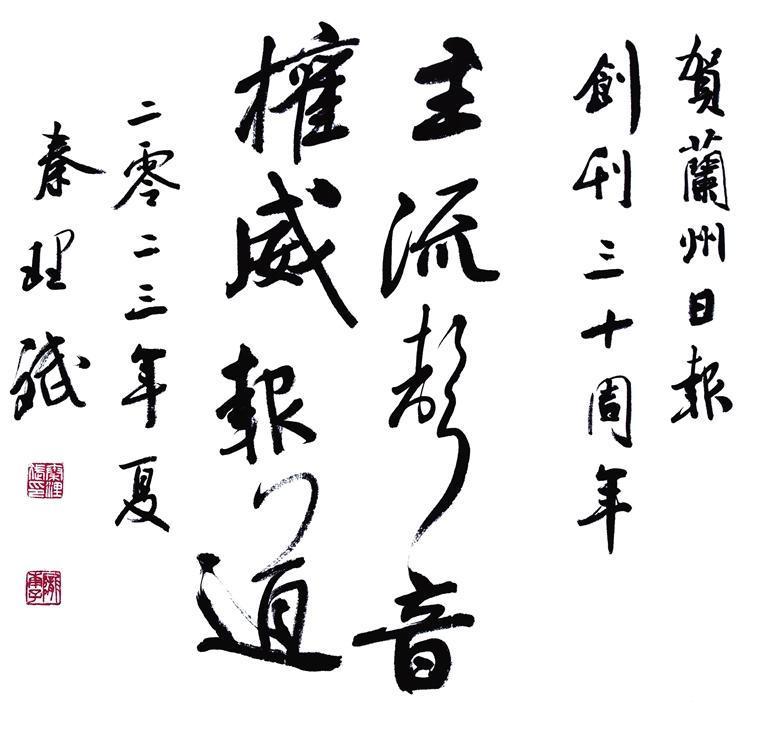 賀蘭州日報
創刊三十周年
主流聲音
權威報道
二零二三年夏
秦理斌